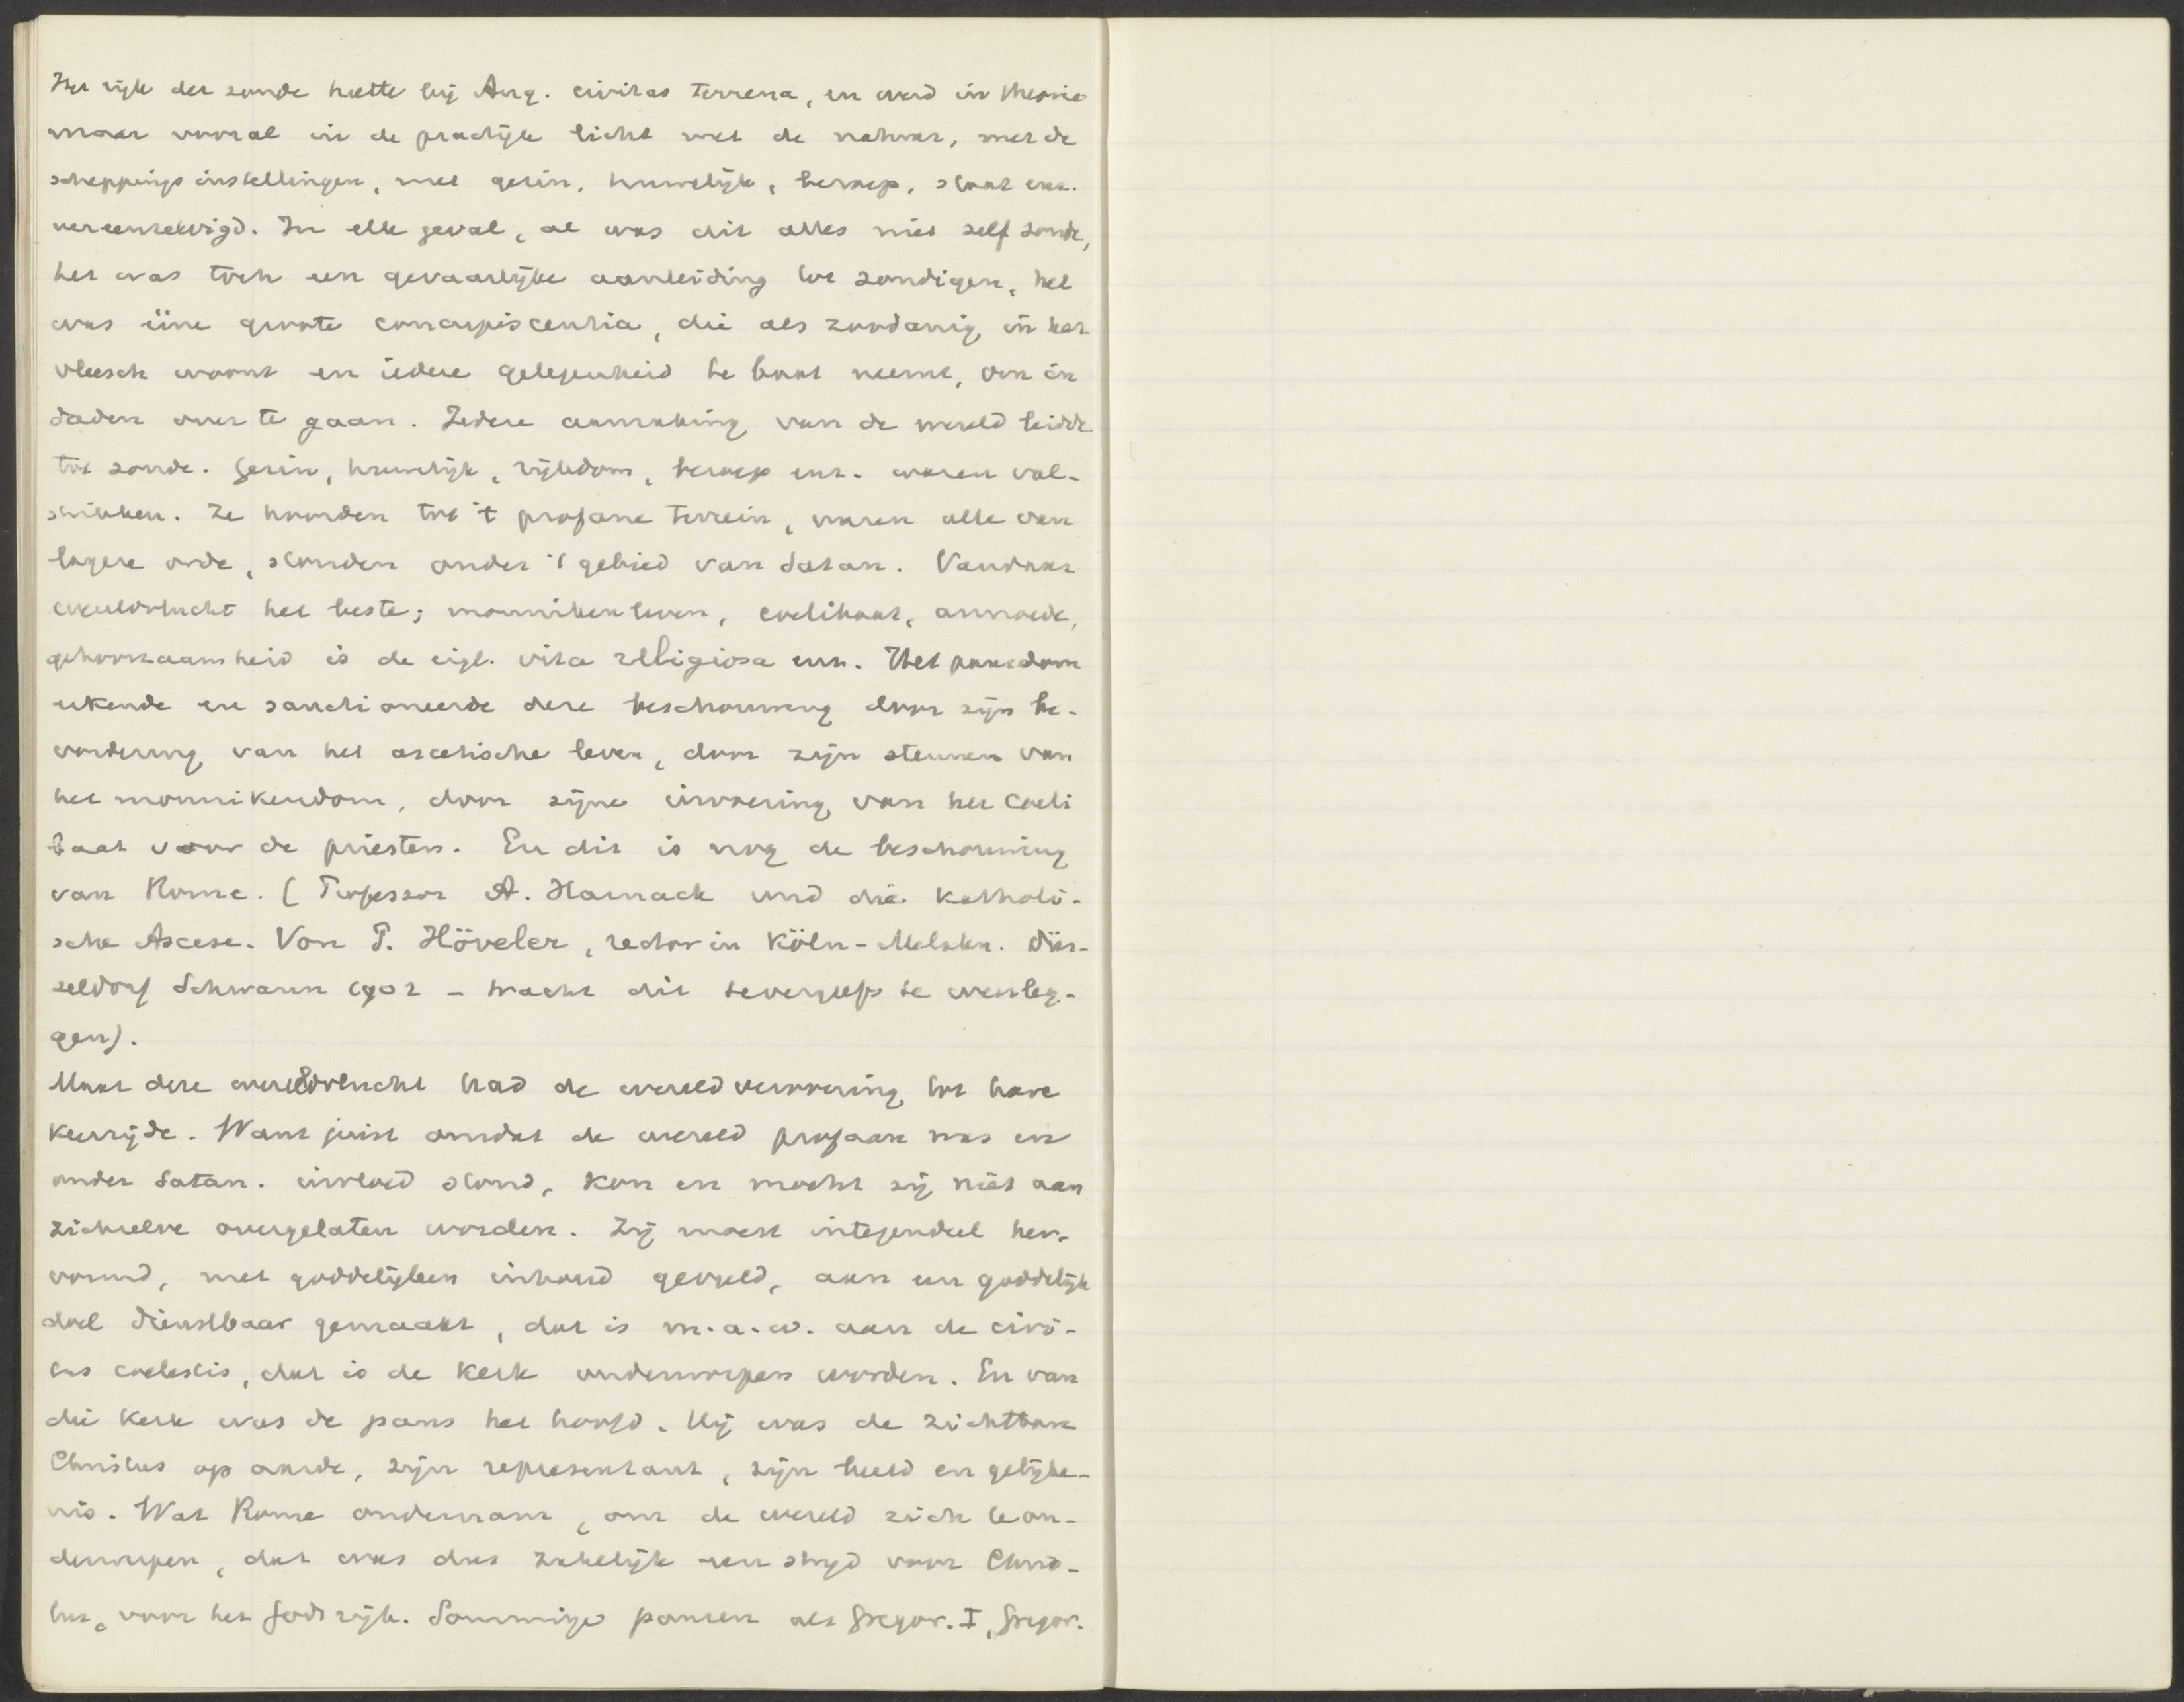 Het rijk der zonde heette bij Aug. civitas terrena, en werd in theorie
maar vooral in de practijk licht met de natuur, met de
scheppingsinstellingen, met gezin, huwelijk, beroep, staat enz.
vereenzelvigd. In elk geval, al was dit alles niet zelf zonde,
het was toch een gevaarlijke aanleiding tot zondigen, het
was ééne groote concupiscentia, die als zoodanig in het
vleesch woont en iedere gelegenheid te baat neemt, om in
daden over te gaan. Iedere aanraking van de wereld leidde
tot zonde. Gezin, huwelijk, rijkdom, beroep enz. waren val-
strikken. Ze hoorden tot 't profane terrein, waren alle van
lagere orde, stonden onder 't gebied van Satan. Vandaar
wereldvlucht het beste; monnikenleven, coelibaat, armoede,
gehoorzaamheid is de eigl. vita religiosa enz. Het pausdom
erkende en sanctioneerde deze beschouwing door zijn be-
vordering van het ascetische leven, door zijn steunen van
het monnikendom, door zijne invoering van het coeli
baat voor de priesters. En dit is nog de beschouwing
van Rome. (Professor A. Harnack und die katholi-
sche Ascese. Von P. Höveler, rector in Köln-Melaten. Düs-
seldorf Schwann 1902 - tracht dit tevergeefs te weerleg-
gen).
Maar deze wereldvlucht had de wereldverovering tot hare
keerzijde. Want juist omdat de wereld profaan was en
onder Satan. invloed stond, kon en mocht zij niet aan
zichzelve overgelaten worden. Zij moest integendeel her-
vormd, met goddelijken inhoud gevuld, aan een goddelijk
doel dienstbaar gemaakt, dat is m.a.w. aan de civi-
tas coelestis, dat is de kerk onderworpen worden. En van
die kerk was de paus het hoofd. Hij was de zichtbare
Christus op aarde, zijn representant, zijn beeld en gelijke-
nis. Wat Rome ondernam, om de wereld zich te on-
derwerpen, dat was dus zakelijk een strijd voor Chris-
tus, voor het Godsrijk. Sommige pausen als Gregor. I, Gregor.